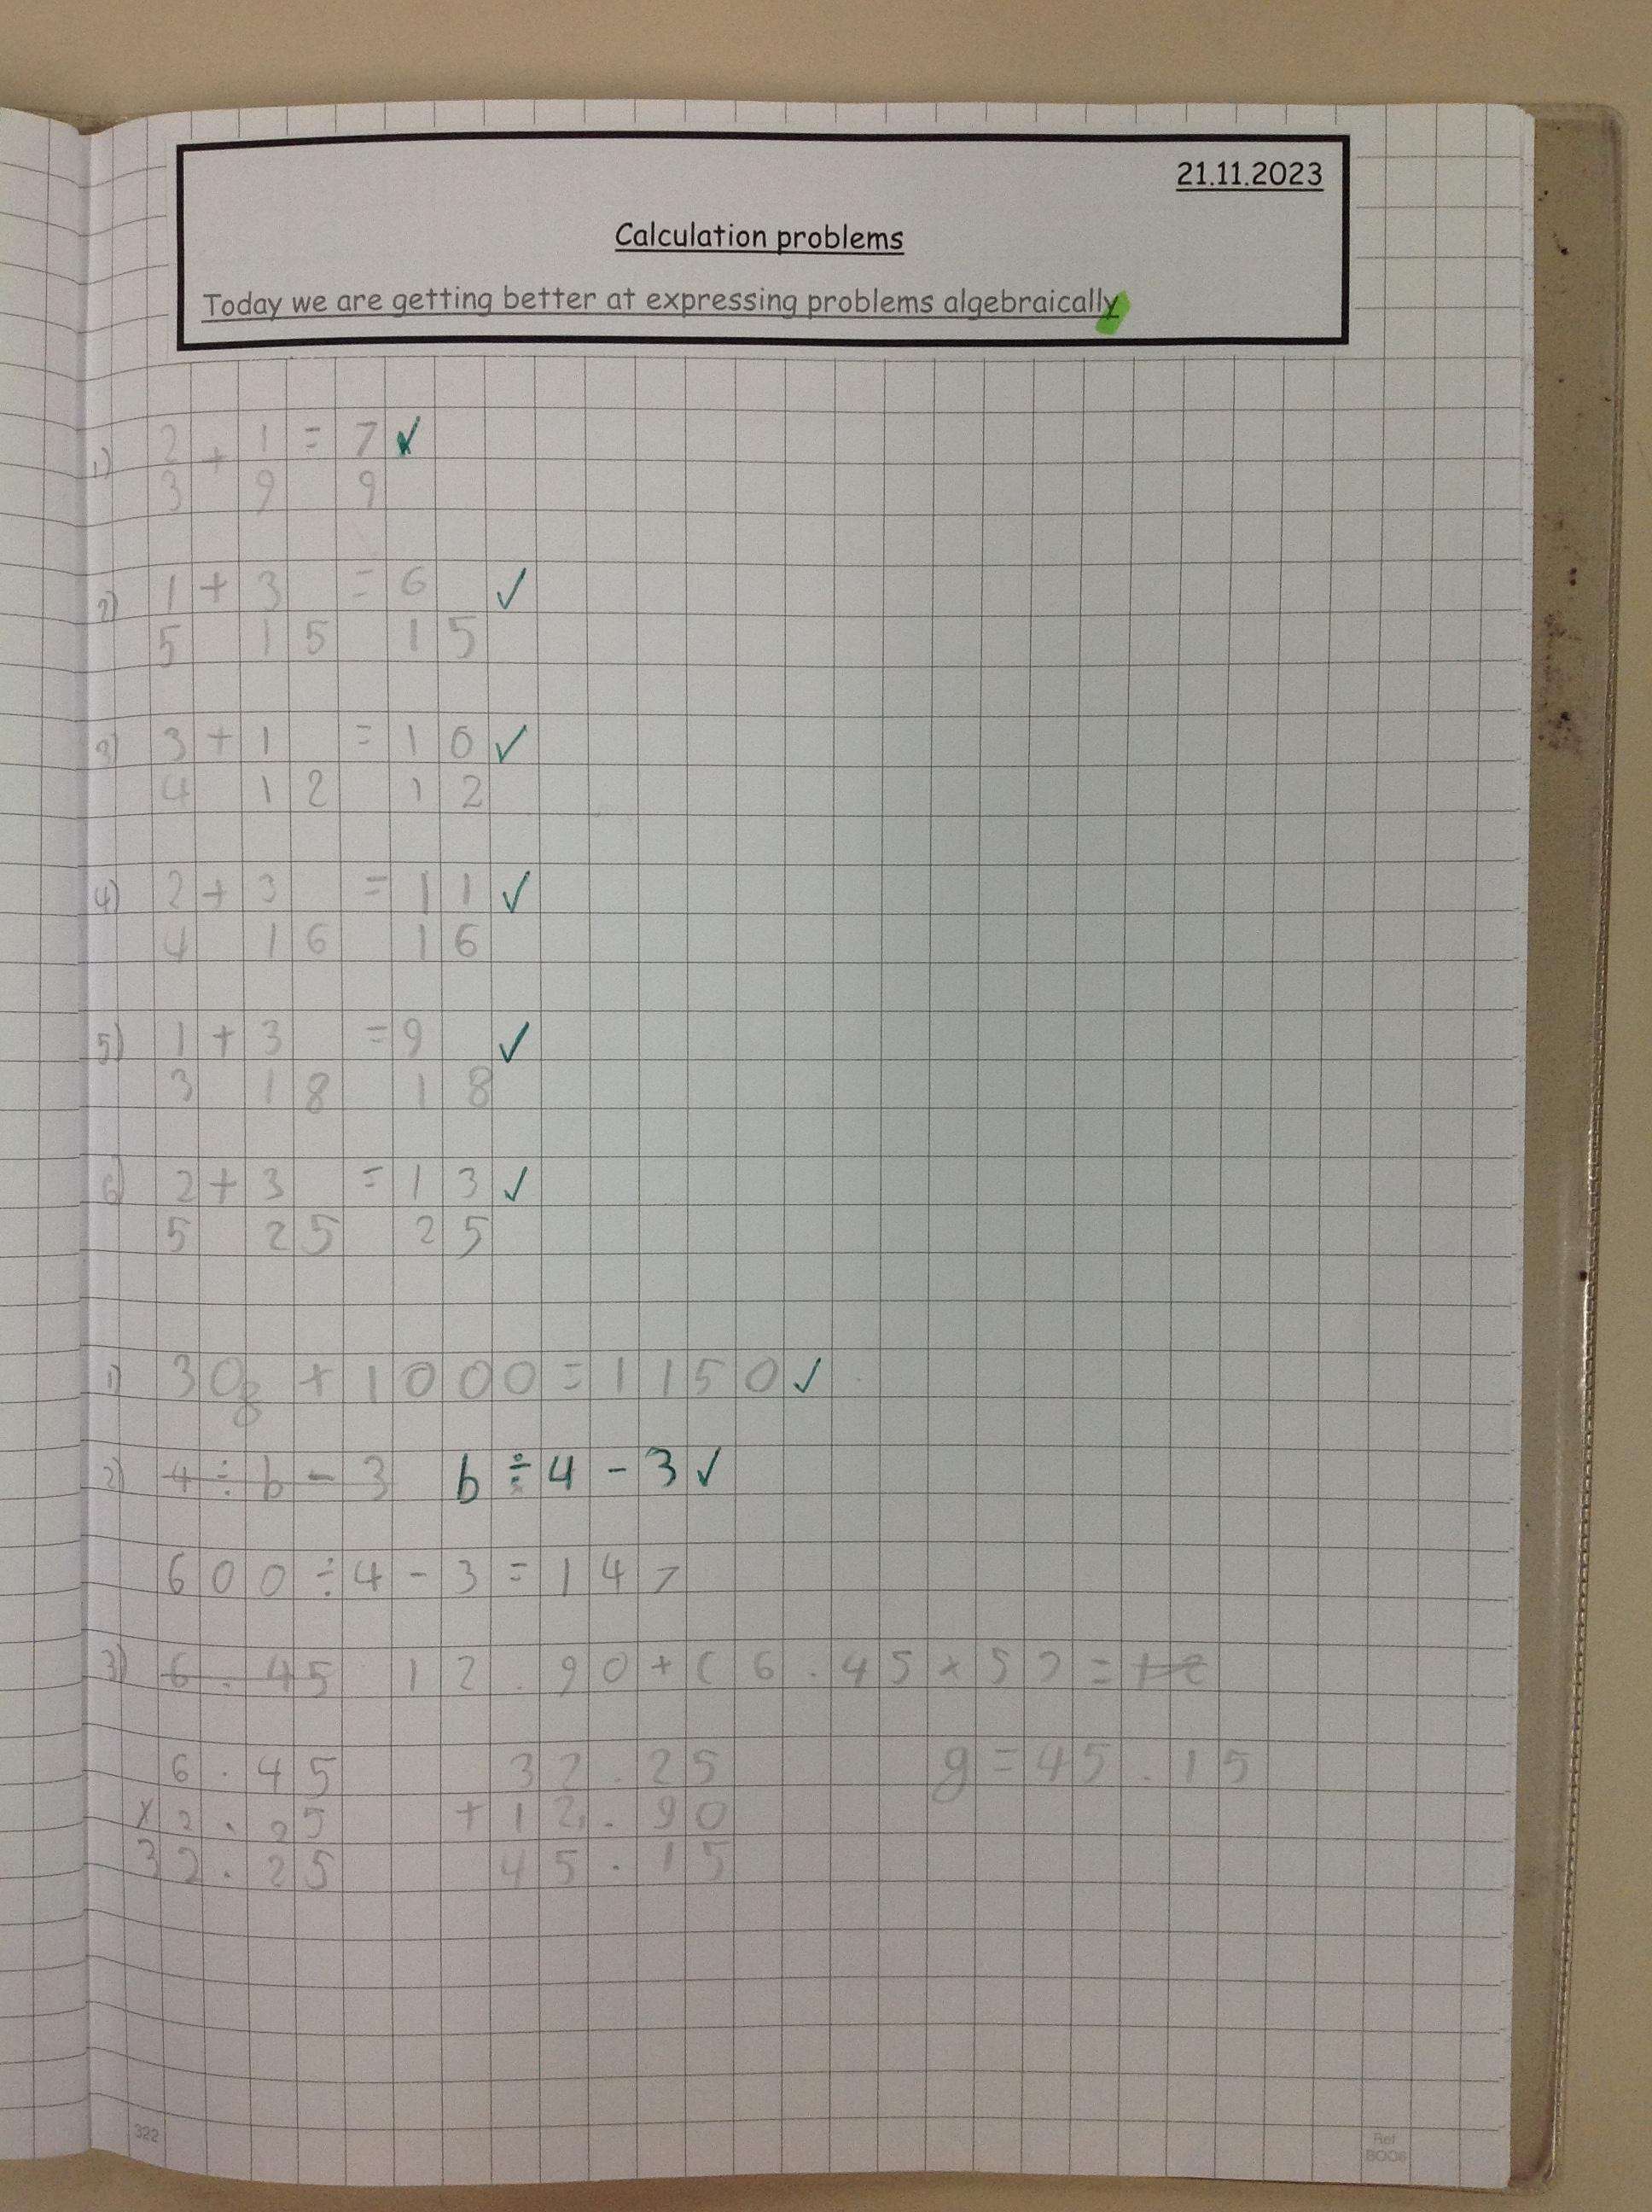 21.11.2023
Calculation problems
Today we are getting better at expressing problems algebraically
1) 2 + 1 = 7 ✓
3 9 9
2) 1 + 3 = 6 ✓
5 15 15
3) 3 + 1 = 10 ✓
4 12 12
4) 2 + 3 = 11 ✓
4 16 16
5) 1 + 3 = 9 ✓
3 18 18
6) 2 + 3 = 13 ✓
5 25 25
1) 30g + 1000 = 1150 ✓
2) 4 ÷ b - 3 b ÷ 4 - 3 ✓
600 ÷ 4 - 3 = 147
3) 6.45 12.90 + (6.45 × 5) =
6.45 32.25 g = 45.15
× 2.25 + 12.90
32.25 45.15
322
Ref
BOO6